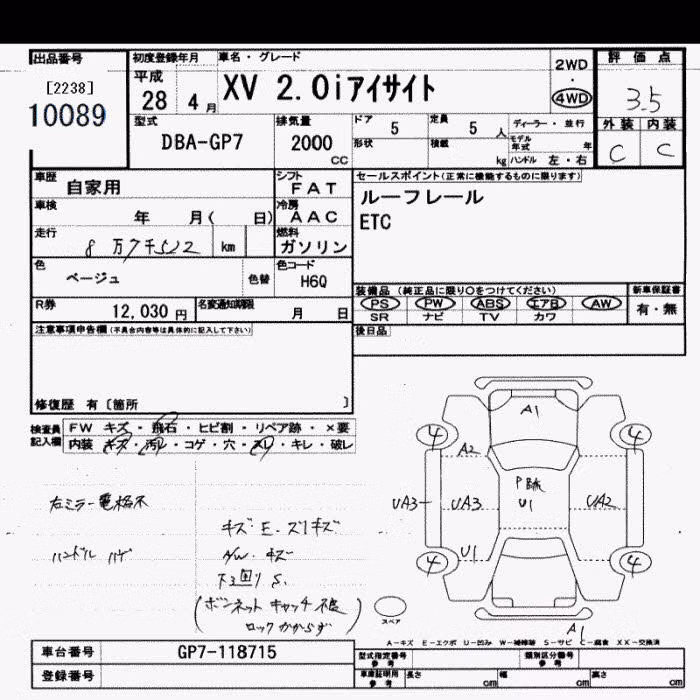 出品番号 初度登録年月 車名・グレード 2WD 評価点
[2238] 平成 XV 2.0iアイサイト ・ 3.5
10089 28 4月 4WD
型式 排気量 ドア 5 定員 5人 ディーラー・並行 外装 内装
DBA-GP7 2000 CC 形状 積載 kg モデル年式 年 C C
ハンドル 左・右
車歴 自家用 シフト FAT セールスポイント(正常に機能するものに限ります)
車検 年 月( 日) 冷房 AAC ルーフレール
走行 8万7千522 km 燃料 ガソリン ETC
色 ベージュ 色替 色コード H6Q
装備品 (純正品に限り○をつけてください) 新車保証書
R券 12,030円 名変通知期限 月 日 PS PW ABS エアB AW 有・無
SR ナビ TV カワ
注意事項申告欄(不具合内容等は具体的に記入して下さい) 後日品
修復歴 有 [箇所 ]
検査員記入欄 FW キズ・飛石・ヒビ割・リペア跡・×要
内装 キズ・汚レ・コゲ・穴・スレ・キレ・破レ
A1
4 4
A2
P跡
UA3 UA3 U1 UA2
右ミラー電格不
キズ E. スリキズ
ハンドル ハゲ AW. キズ U1
4 4
下回り S.
(ボンネット キャッチ不良
ロックかからず) スペア
A1
A-キズ E-エクボ U-凹み W-補修跡 S-サビ C-腐食 XX-交換済
車台番号 GP7-118715 型式指定番号 参考 類別区分番号 参考
登録番号 車庫証明用 参考 長さ cm 幅 cm 高さ cm